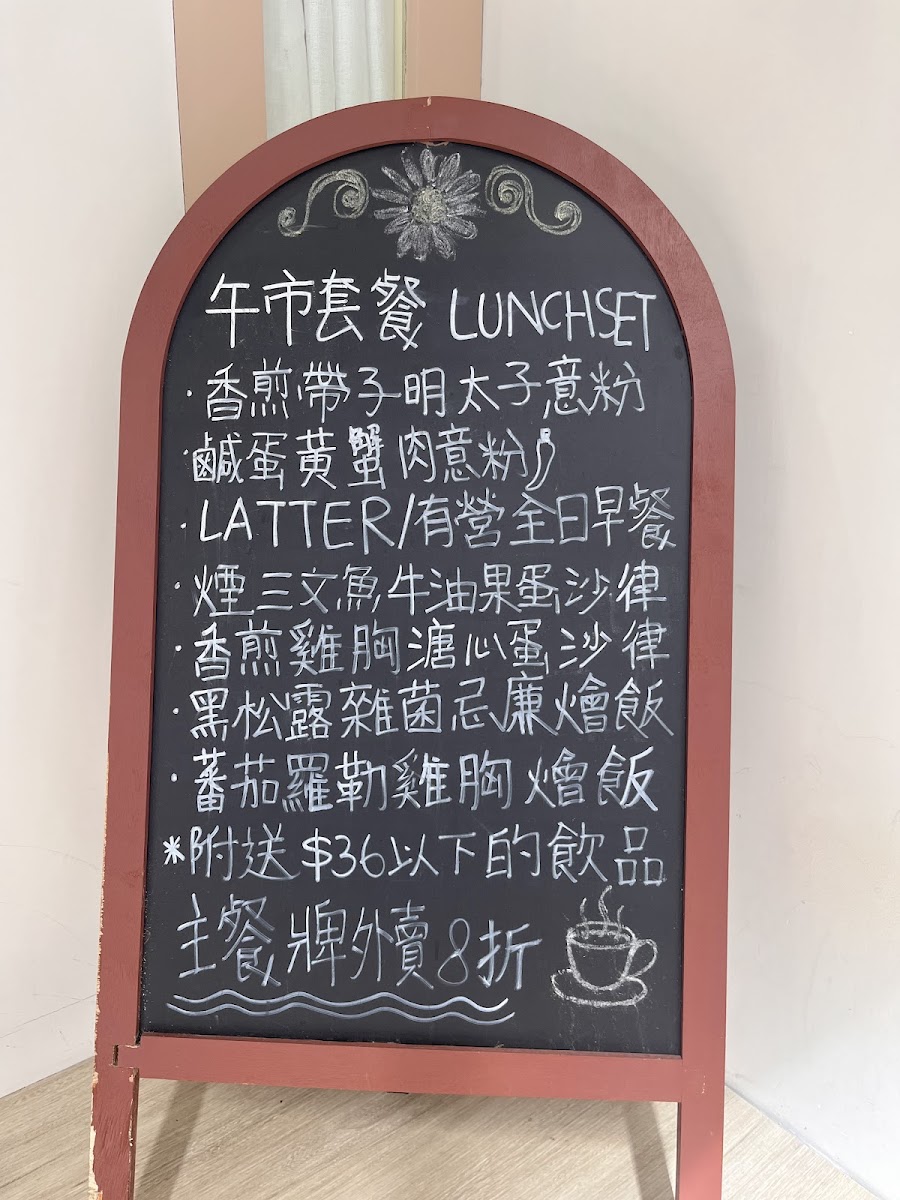 午市套餐 LUNCHSET
·香煎帶子明太子意粉
·鹹蛋黃蟹肉意粉
·LATTER/有營全日早餐
·煙三文魚牛油果蛋沙律
·香煎雞胸溏心蛋沙律
·黑松露雜菌忌廉燴飯
·蕃茄羅勒雞胸燴飯
*附送$36以下的飲品
主餐牌外賣8折